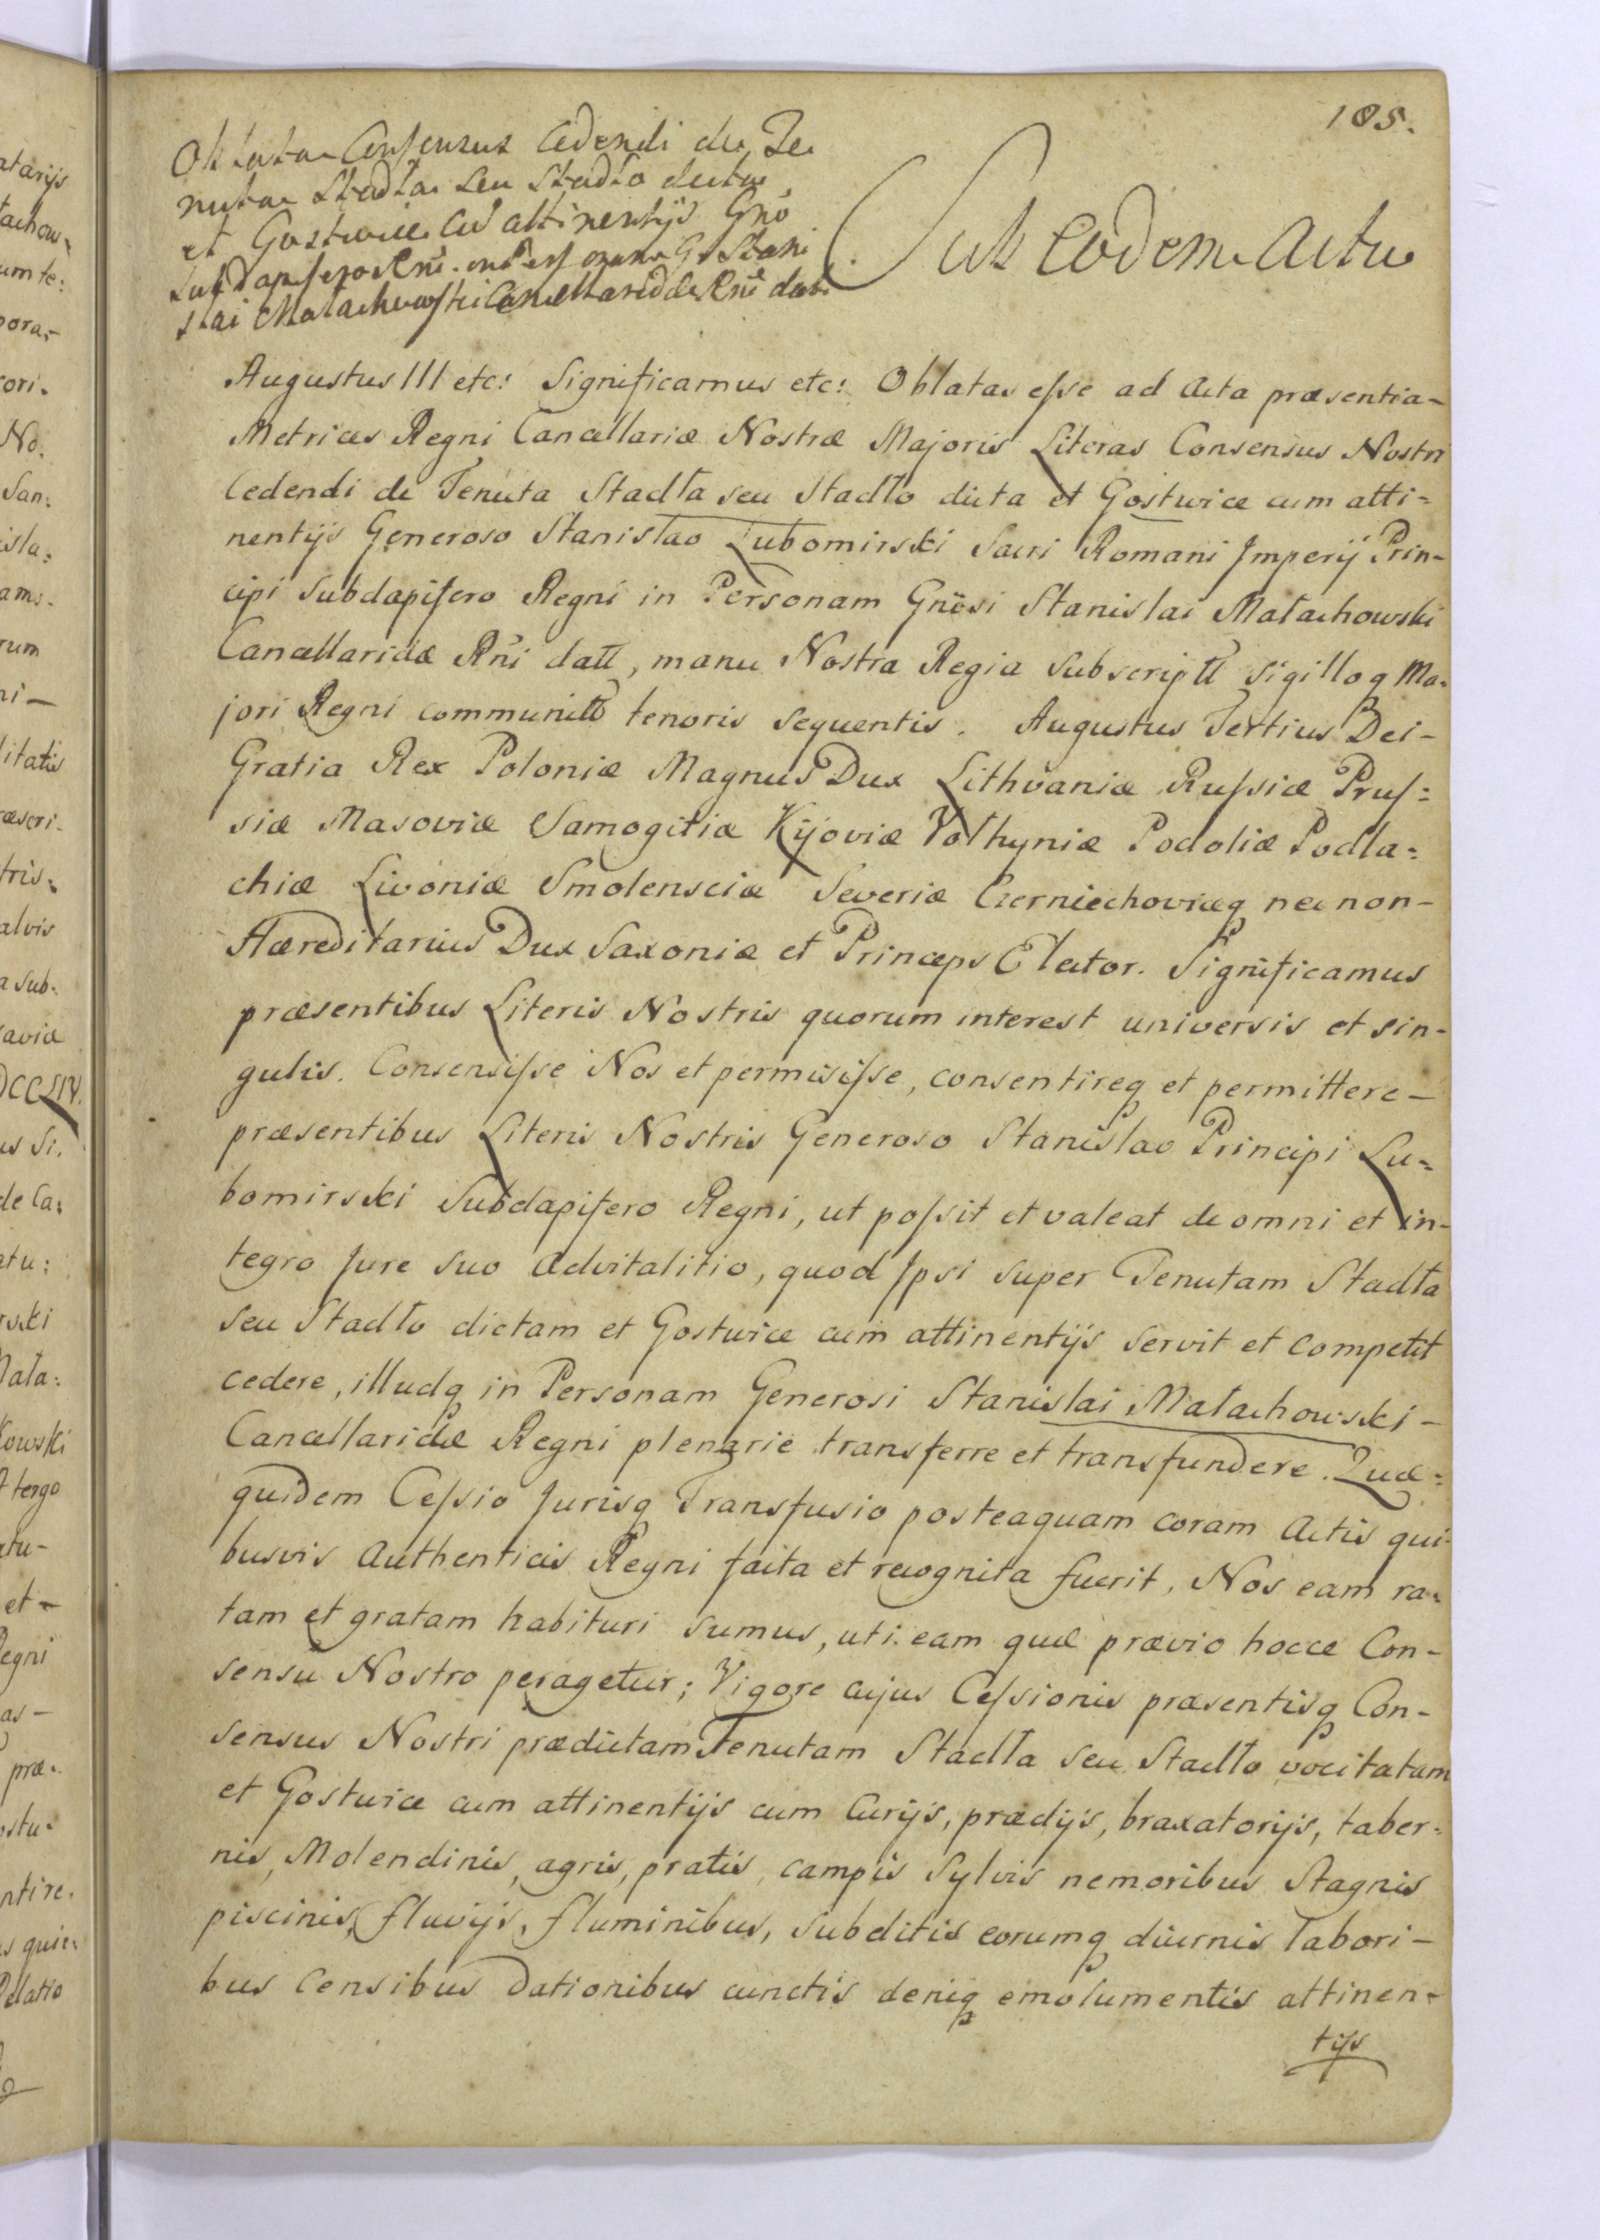 185.
Oblata Consensus Cedendi de Te
nuta Stadła seu Stadło dicta
et Gostwice cũ attinentijs Gño
Subdapifero Rñi. in Personam G. Stani
slai Małachowski Cancellaridæ Rñi dat.
Sub eodem Actu
Augustus III etc: Significamus etc: Oblatas eſse ad Acta præsentia-
Metrices Regni Cancellariæ Nostræ Majoris Literas Consensus Nostri
Cedendi de Tenuta Stadła seu Stadło dicta et Gostwice cum atti=
nentijs Generoso Stanislao Lubomirski Sacri Romani Imperij Prin-
cipi Subdapifero Regni in Personam Gnësi Stanislai Małachowski
Cancellaridæ Rñi datt, manu Nostra Regia subscriptt sigilloq Ma-
jori Regni communitt tenoris sequentis. Augustus Tertius Dei-
Gratia Rex Poloniæ Magnus Dux Lithvaniæ Ruſsiæ Pruſ=
siæ Masoviæ Samogitiæ Kijoviæ Volhyniæ Podoliæ Podla=
chiæ Livoniæ Smolensciæ Severiæ Czerniechoviæq necnon-
Hæreditarius Dux Saxoniæ et Princeps Elector. Significamus
præsentibus Literis Nostris quorum interest universis et sin-
gulis. Consensiſse Nos et permisiſse, consentireq et permittere-
præsentibus Literis Nostris Generoso Stanislao Principi Lu=
bomirski Subdapifero Regni, ut poſsit et valeat de omni et in-
tegro Jure suo Advitalitio, quod Ipsi super Tenutam Stadła
seu Stadło dictam et Gostwice cum attinentijs servit et competit
cedere, illudq in Personam Generosi Stanislai Małachowski-
Cancellaridæ Regni plenarie transferre et transfundere. Quæ=
quidem Ceſsio Jurisq Transfusio posteaquam coram Actis qui-
busvis Authenticis Regni facta et recognita fuerit, Nos eam ra-
tam et gratam habituri sumus, uti. eam quæ prævio hocce Con-
sensu Nostro peragetur; Vigore cujus Ceſsionis præsentisq Con-
sensus Nostri prædictam Tenutam Stadła seu Stadło vocitatam
et Gostwice cum attinentijs cum Curijs, prædijs, braxatorijs, taber=
nis, Molendinis, agris, pratis, campis sylvis nemoribus Stagnis
piscinis, fluvijs, fluminibus, subditis eorumq diurnis labori-
bus Censibus dationibus cunctis deniq emolumentis attinen-
tijs